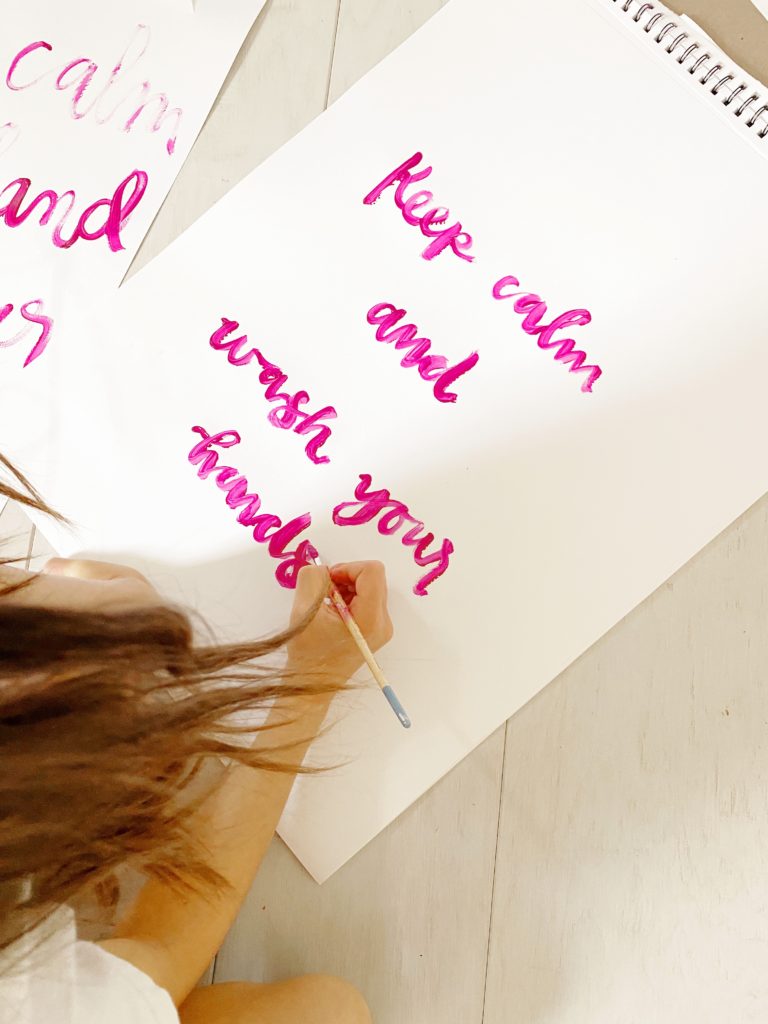 calm
and
Keep calm
and
wash your
hands